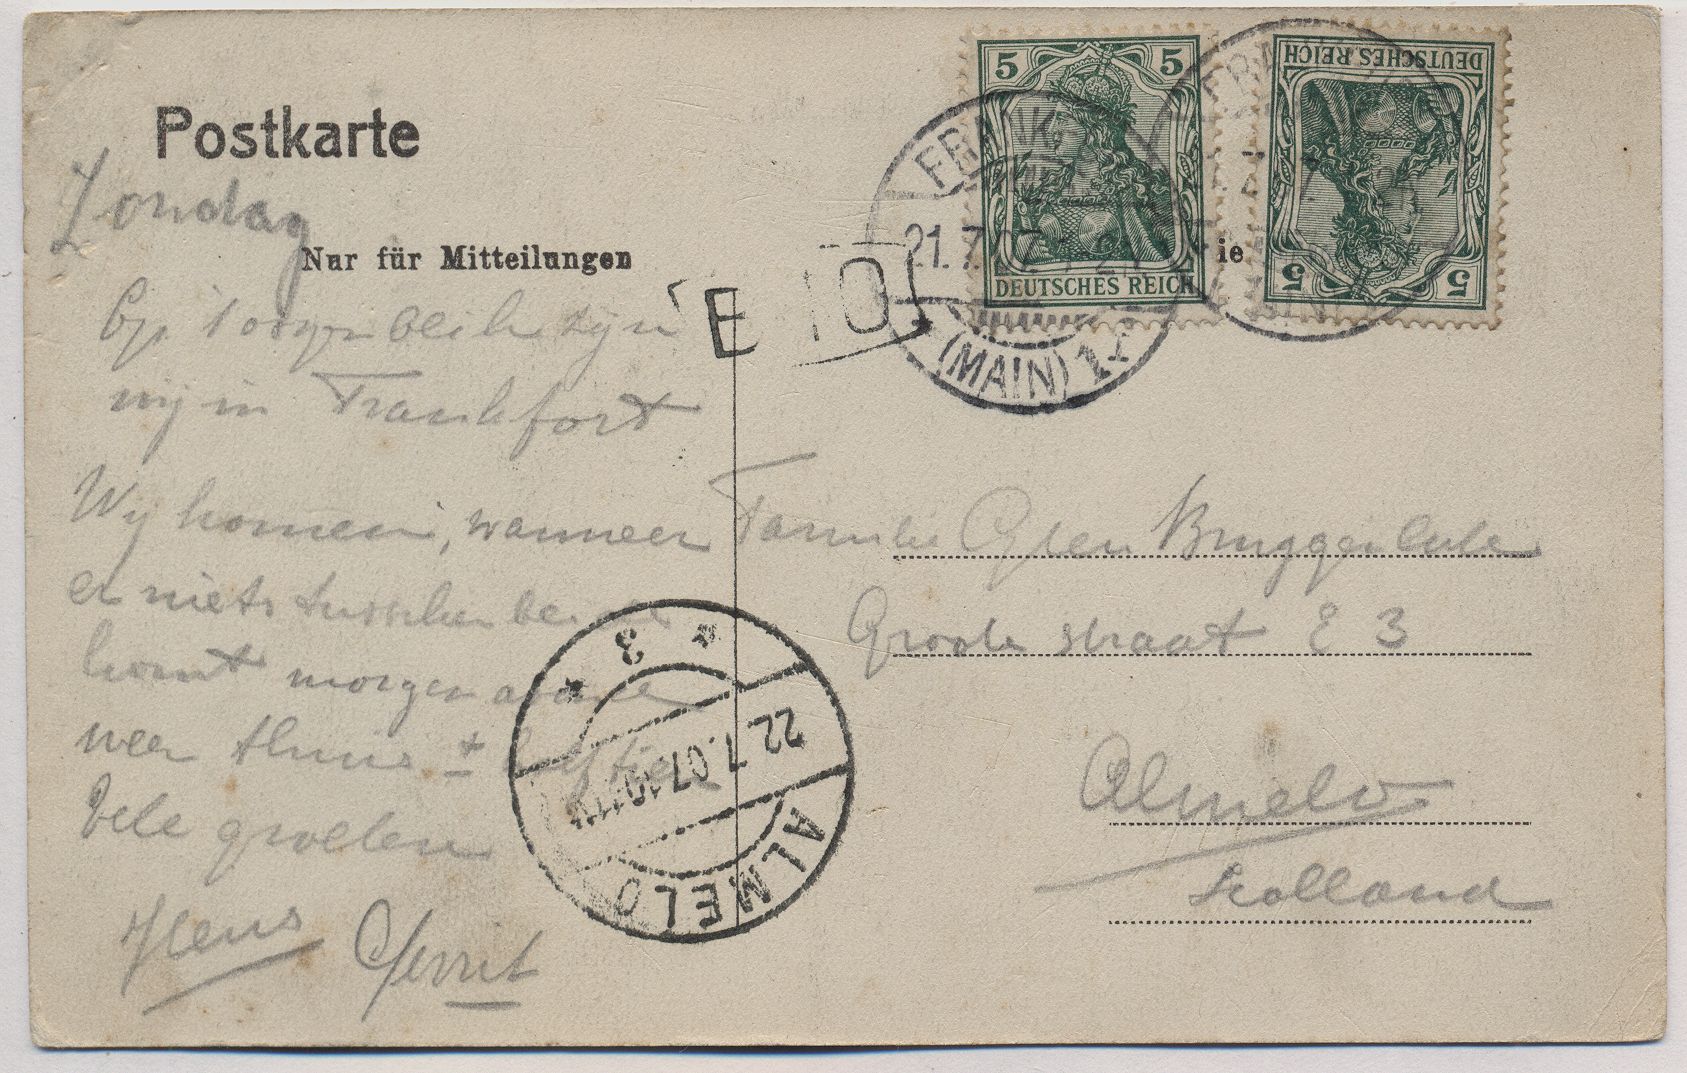 Postkarte
Zondag
Nur für Mitteilungen
Op 't oogenblik zijn
wij in Frankfort
Wij komen, wanneer
er niets tusschen
komt morgen avond
weer thuis ±
Vele groeten
Hens Gerrit
5 5
DEUTSCHES REICH
DEUTSCHES REICH
5
FRANK
21.7.07.
(MAIN) 1
ie
Familie G ten Bruggencate
Groote straat E 3
Almelo
Holland
3
22.7.07
ALMELO